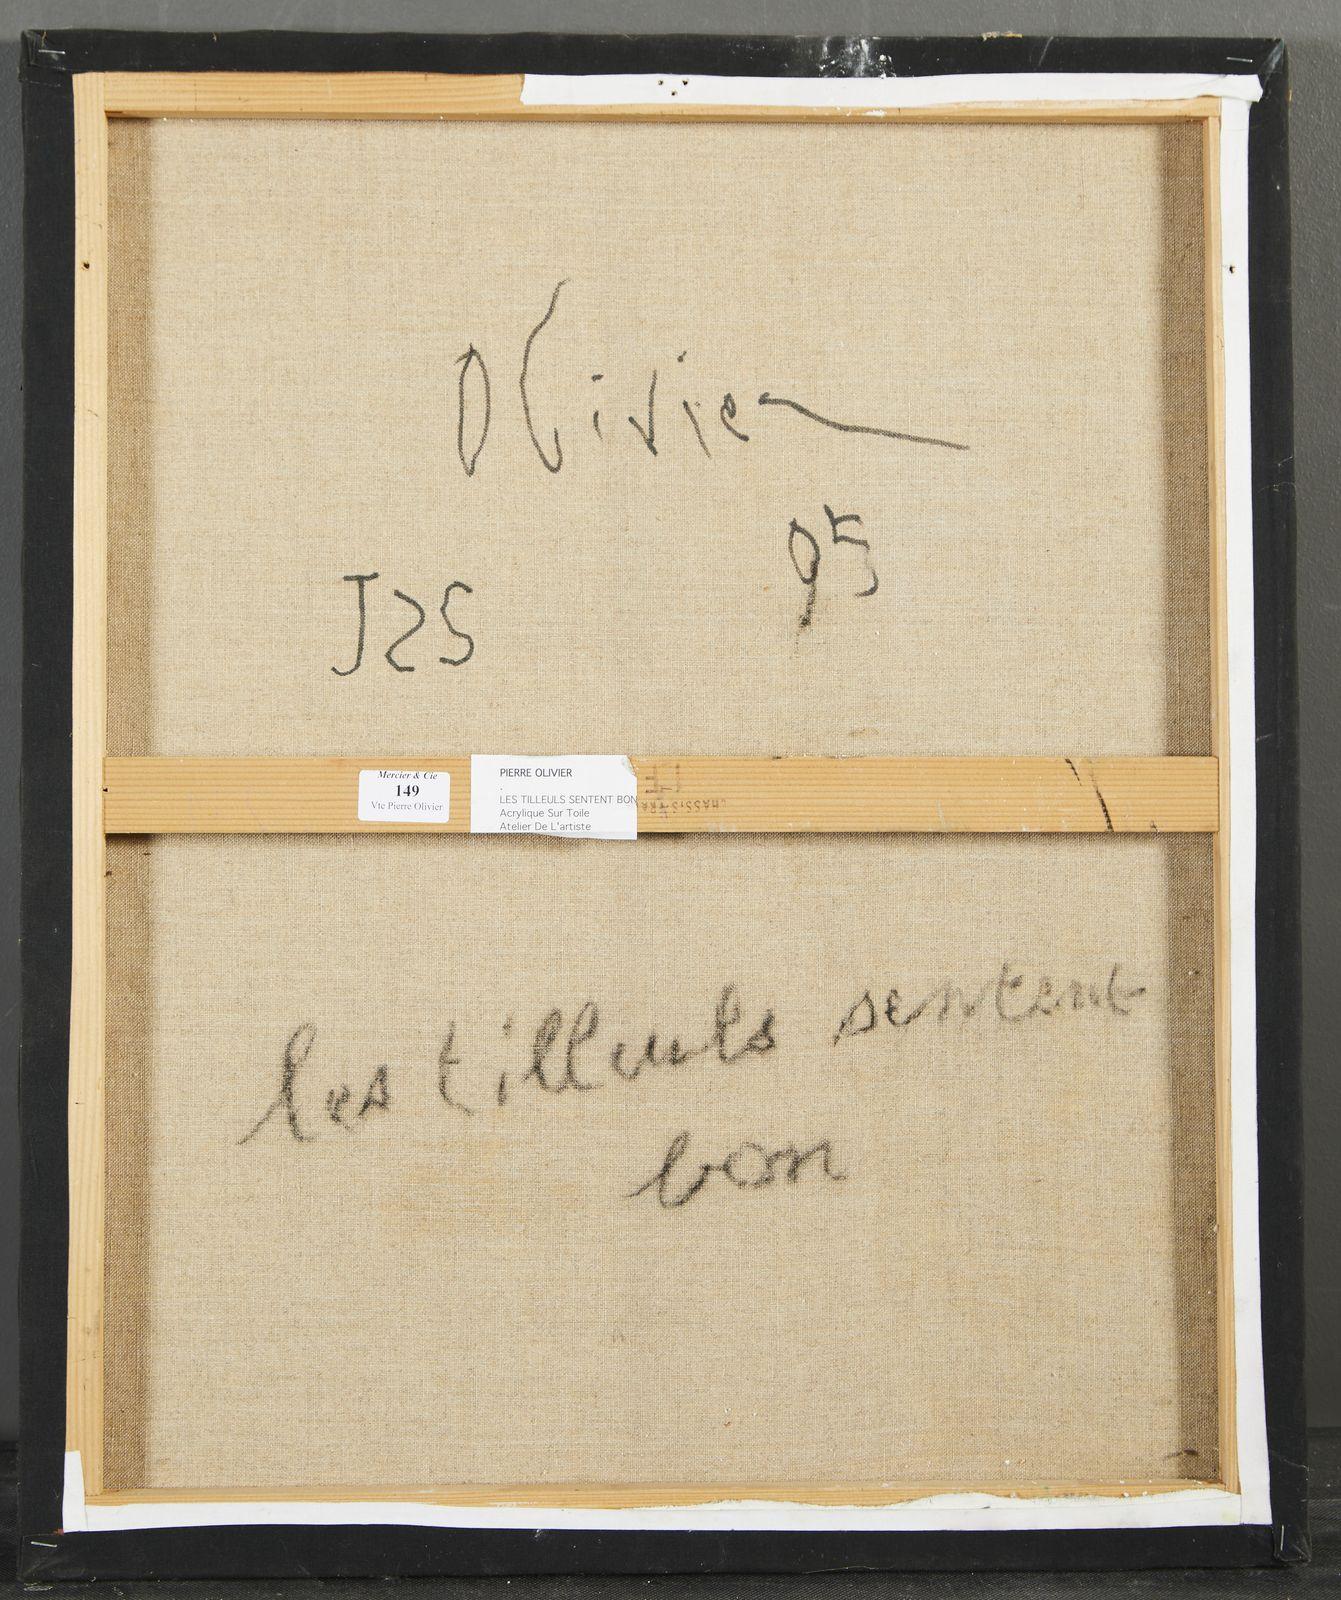 Olivier
95
J25
Mercier & Cie
149
Vte Pierre Olivier
PIERRE OLIVIER
LES TILLEULS SENTENT BON
Acrylique Sur Toile
Atelier De L'artiste
les tilleuls sentent
bon